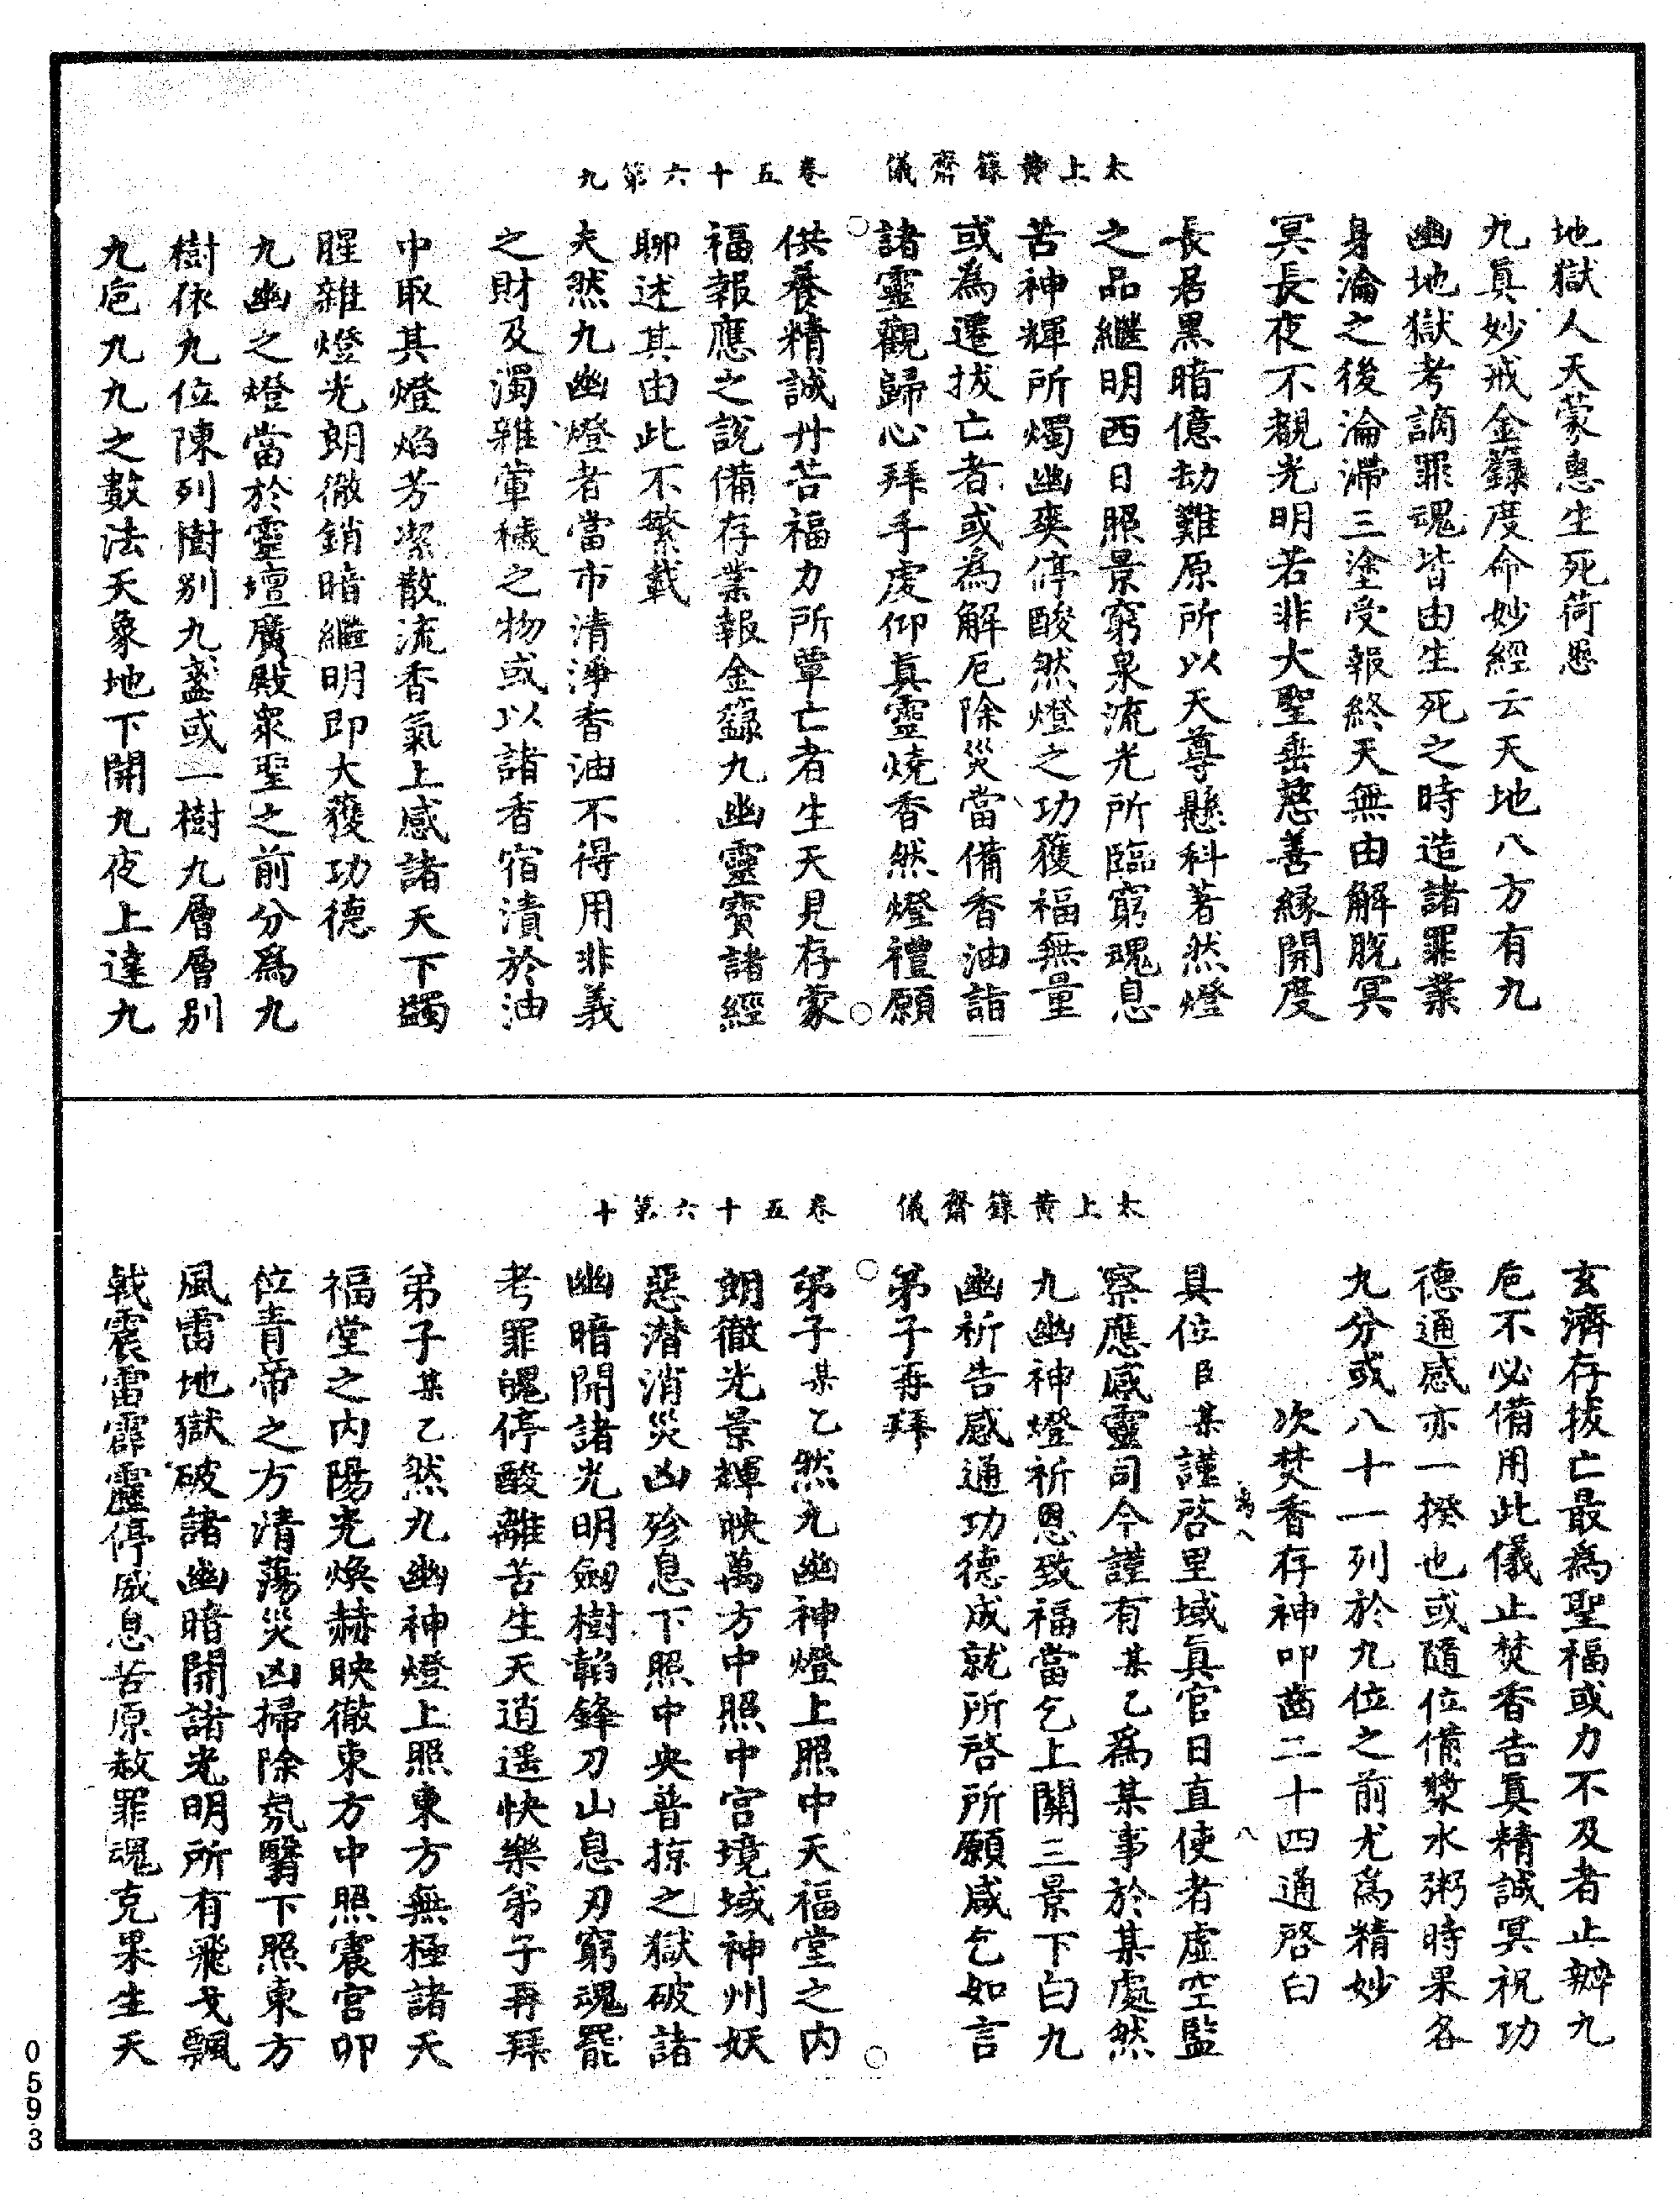 太上黃籙齋儀　卷五十六第九
地獄人天蒙惠生死荷恩
九眞妙戒金籙度命妙經云天地八方有九
幽地獄考謫罪魂皆由生死之時造諸罪業
身淪之後淪滯三塗受報終天無由解脫冥
冥長夜不覩光明若非大聖垂慈善緣開度
長居黑暗億劫難原所以天尊懸科著然燈
之品繼明西日照景窮泉流光所臨窮魂息
苦神輝所燭幽爽停酸然燈之功獲福無量
或為遷拔亡者或為解厄除災當備香油詣
諸靈觀歸心拜手虔仰眞靈燒香然燈禮願
供養精誠丹苦福力所覃亡者生天見存蒙
福報應之說備存業報金籙九幽靈寶諸經
聊述其由此不繁載
夫然九幽燈者當市清淨香油不得用非義
之財及濁雜葷穢之物或以諸香宿漬於油
中取其燈焰芳潔散流香氣上感諸天下蠲
腥雜燈光朗徹銷暗繼明即大獲功德
九幽之燈當於靈壇廣殿衆聖之前分爲九
樹依九位陳列樹別九盞或一樹九層層別
九巵九九之數法天象地下開九夜上達九
太上黃籙齋儀　卷五十六第十
玄濟存拔亡最為聖福或力不及者止辦九
巵不必備用此儀止焚香告眞精誠冥祝功
德通感亦一揆也或隨位備漿水粥時果各
九分或八十一列於九位之前尤爲精妙
次焚香存神叩齒二十四通啓曰
具位臣某謹啓里域眞官日直使者虛空監
察應感靈司今謹有某乙爲某事於某處然
九幽神燈祈恩致福當乞上關三景下白九
幽祈告感通功德成就所啓所願咸乞如言
弟子再拜
弟子某乙然九幽神燈上照中天福堂之内
朗徹光景輝映萬方中照中宮境域神州妖
惡潜消災凶殄息下照中央普掠之獄破諸
幽暗開諸光明劒樹韜鋒刀山息刃窮魂罷
考罪魄停酸離苦生天逍遥快樂弟子再拜
弟子某乙然九幽神燈上照東方無極諸天
福堂之内陽光煥赫映徹東方中照震宮卯
位青帝之方清蕩災凶掃除氛翳下照東方
風雷地獄破諸幽暗開諸光明所有飛戈飄
戟震雷霹靂停威息苦原赦罪魂克果生天
0593